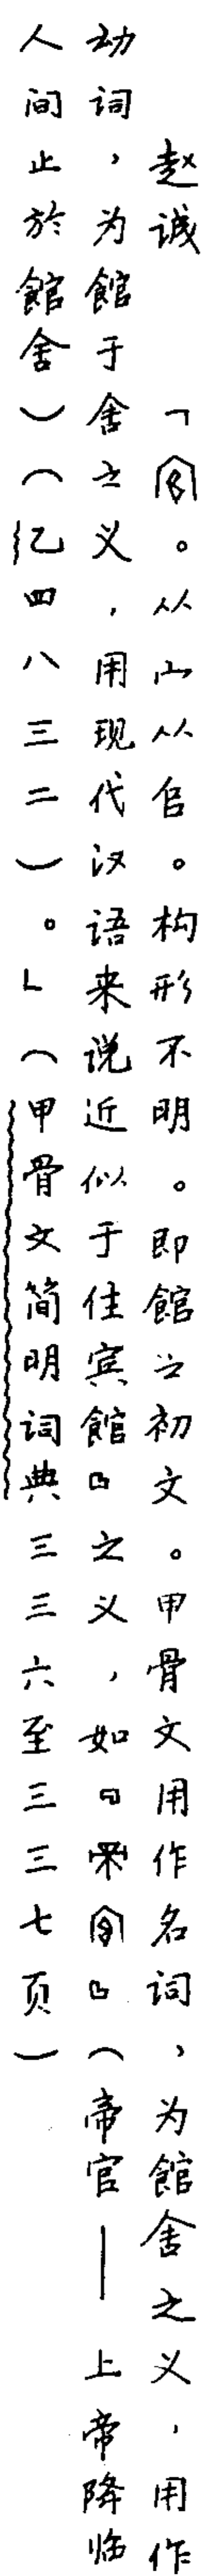 赵诚　「。从宀从㠯。构形不明。即館之初文。甲骨文用作名词，为館舍之义，用作
动词，为館于舍之义，用现代汉语来说近似于住宾館』之义，如『』（帝官——上帝降临
人间止於館舍）（乙四八三二）。」（甲骨文简明词典三三六至三三七页）